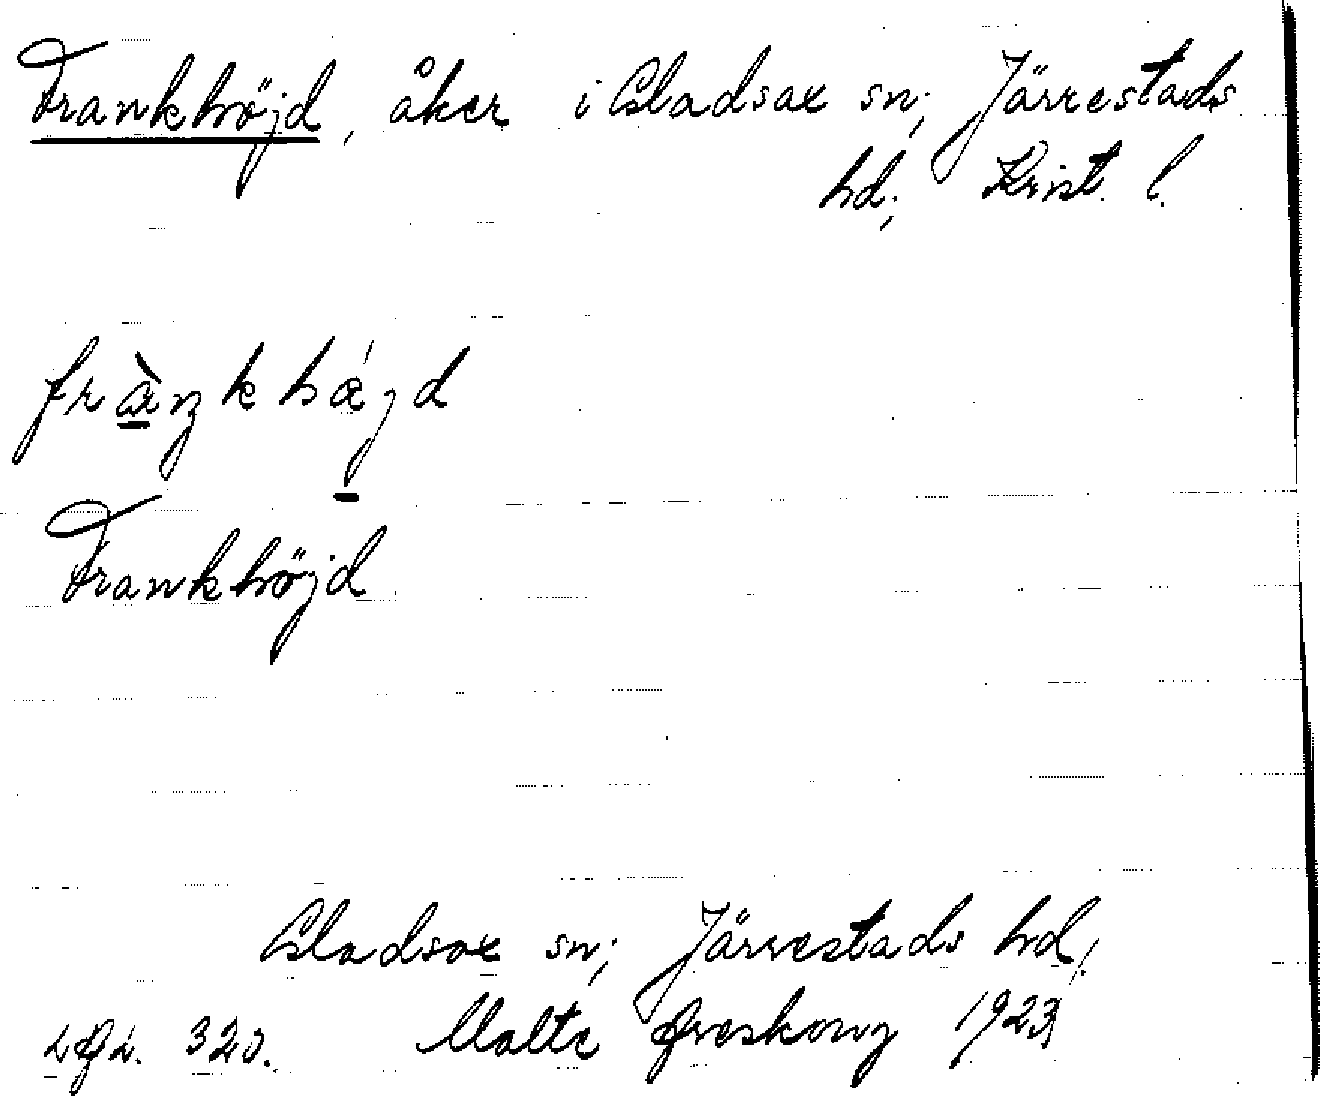 Frankhöjd, åker i Gladsax sn; Järrestads
hd; Krist. l.
Frankhöjd
Gladsax sn; Järrestads hd;
320. Malte 1923